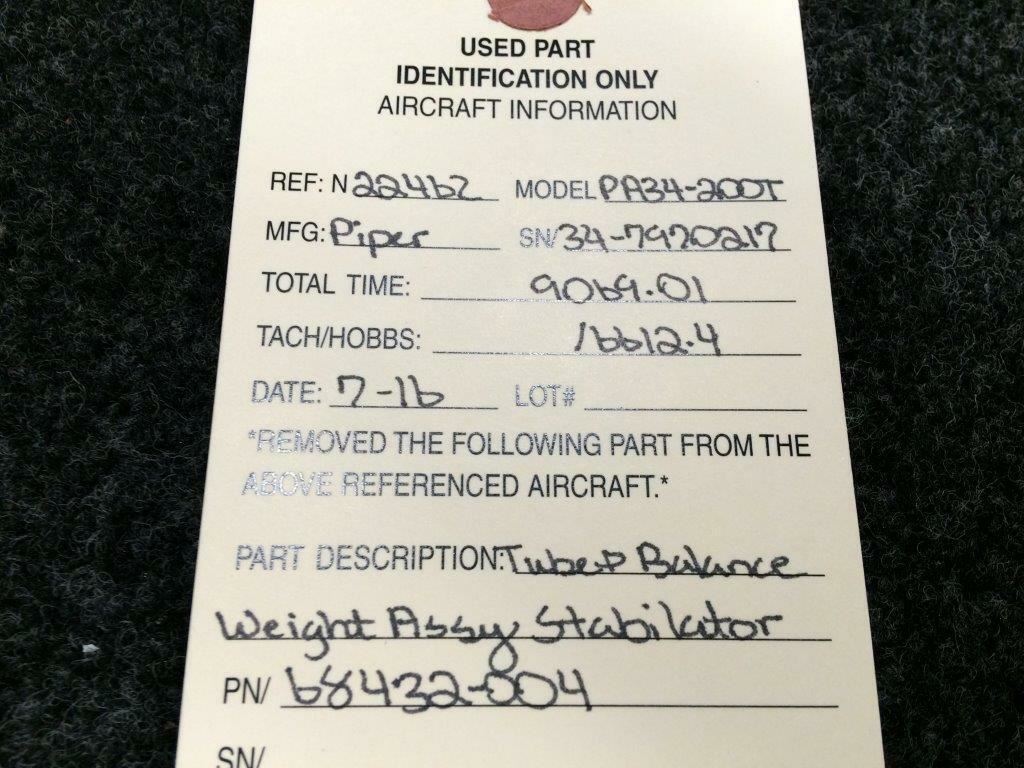 USED PART
IDENTIFICATION ONLY
AIRCRAFT INFORMATION
REF: N 22462 MODEL PA34-200T
MFG: Piper SN/ 34-7970217
TOTAL TIME: 9069.01
TACH/HOBBS: 16612.4
DATE: 7-16 LOT#
*REMOVED THE FOLLOWING PART FROM THE
ABOVE REFERENCED AIRCRAFT.*
PART DESCRIPTION: Tube & Balance
Weight Assy Stabilator
PN/ 68432-004
SN/